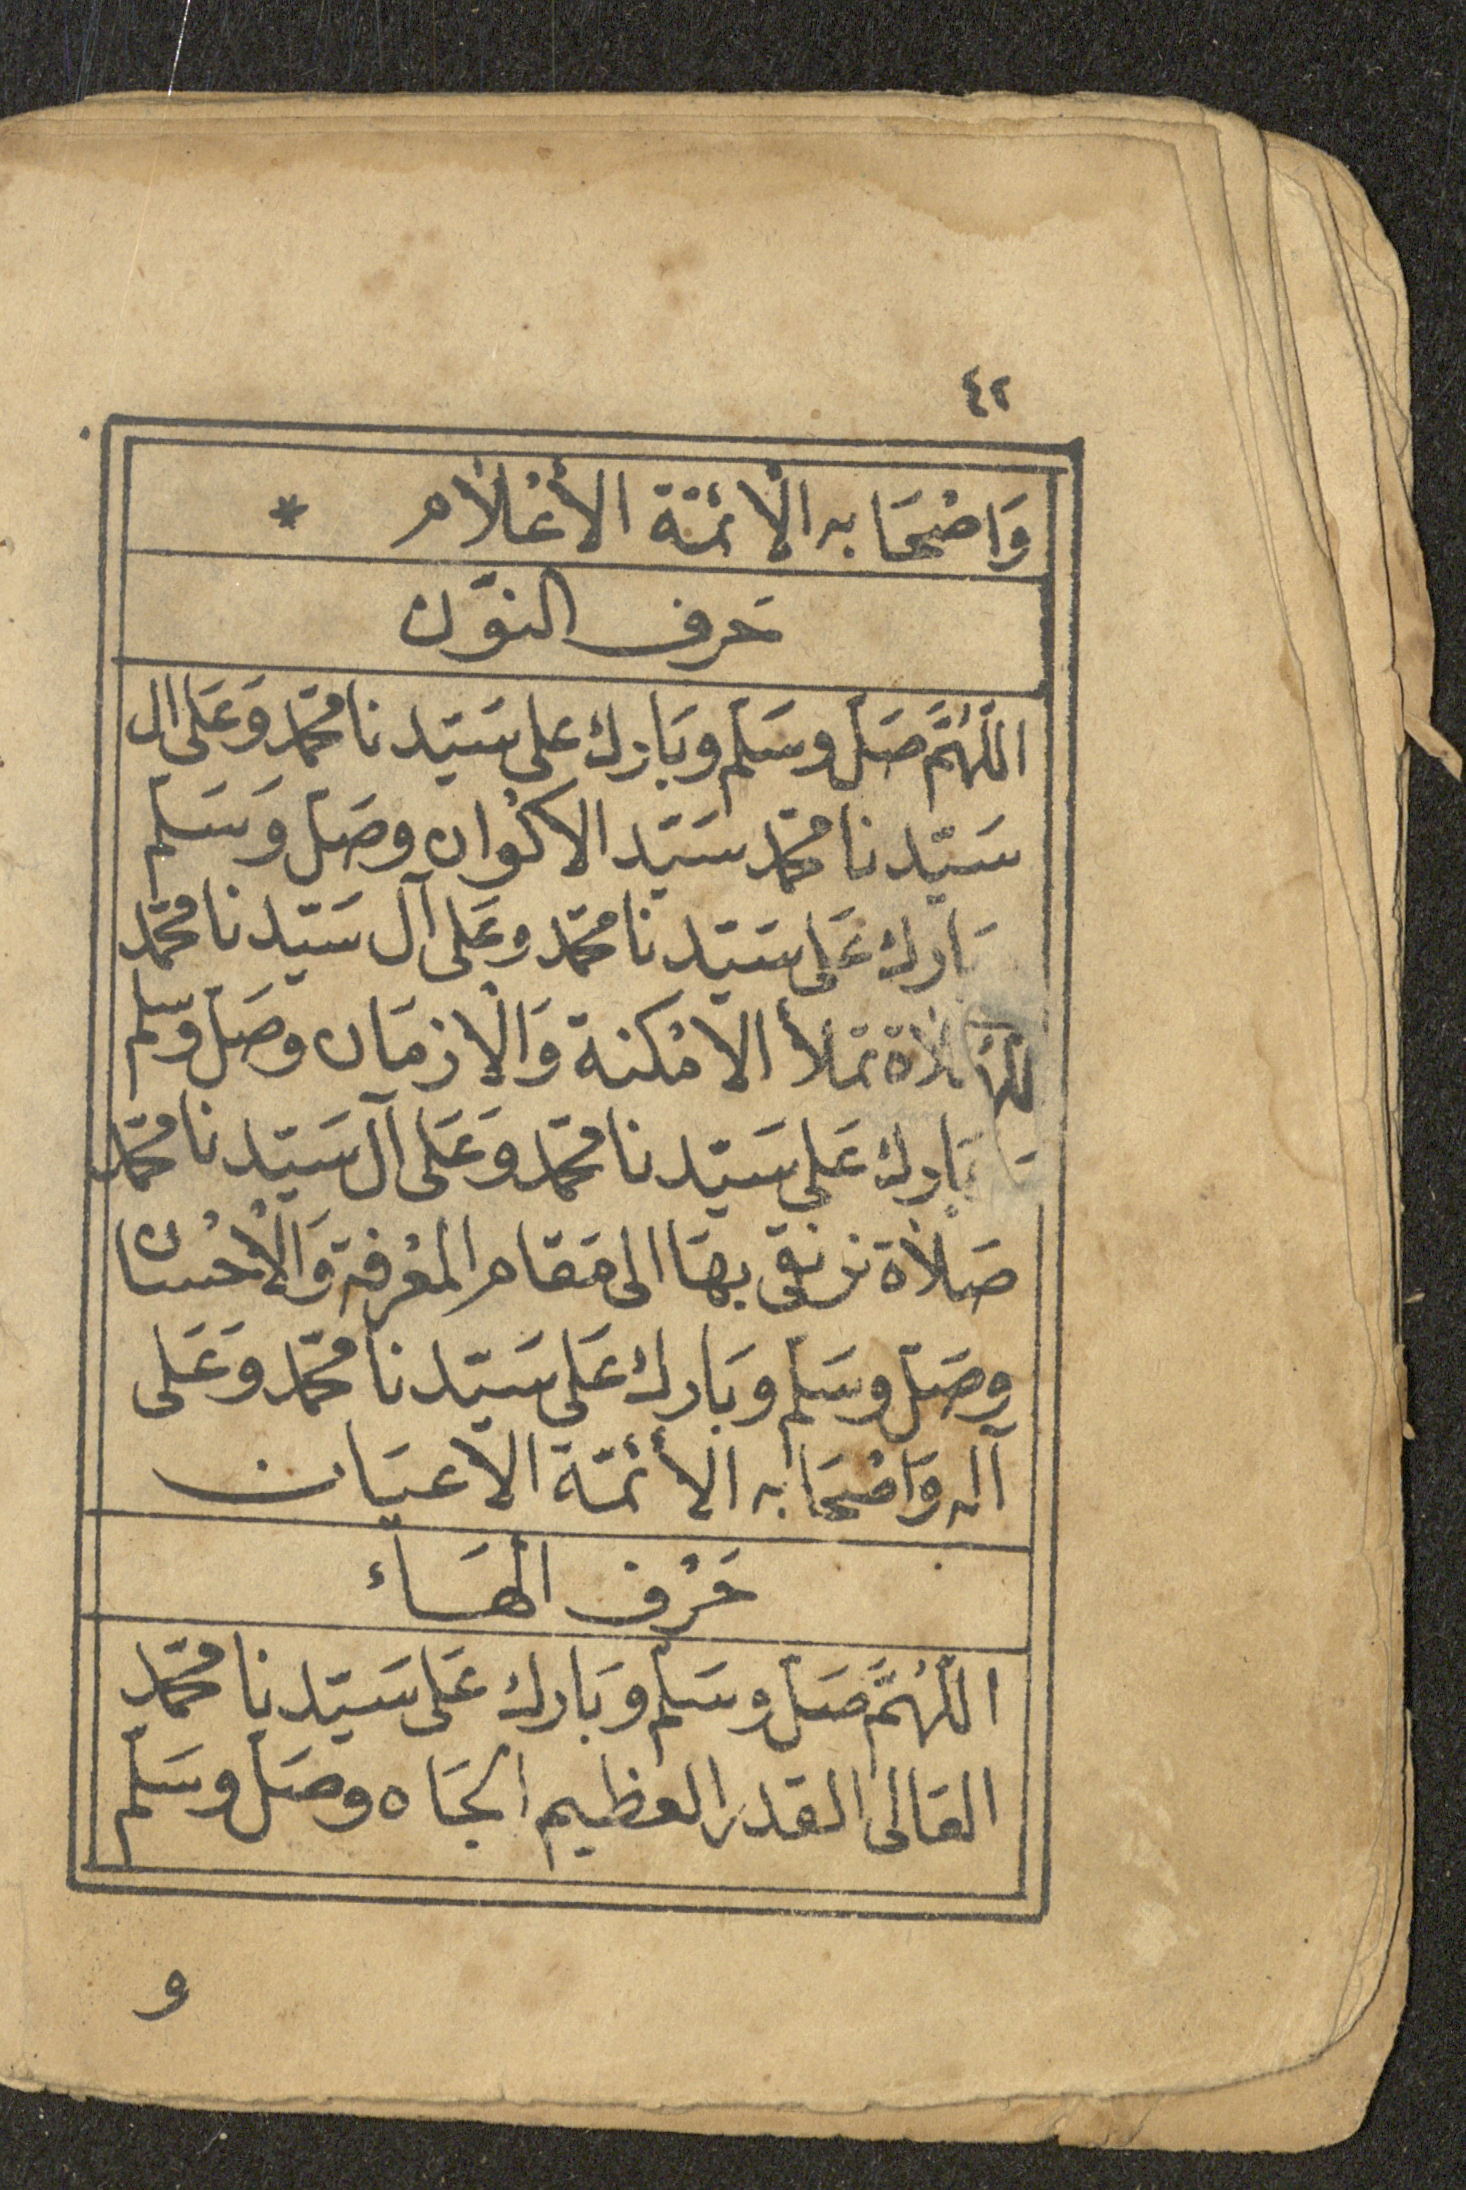 ٤٢
وَاصْحَابه الْائمّة الأعْلَام *
حَرف النوّن
اللّٰهُمَّ صَلّ وسَلّم وبَارك على سَيّدنا محمّد وَعَلى ال
سَيّدنا محمّد سَيّد الاكْوان وصَلّ وَسَلّم
بَارك عَلى سَيّدنا محمّد وعَلى آل سَيّدنا محمّد
تملأ الامْكنة وَالْازمَان وصَلّ وسّلم
بَارك عَلى سَيّدنا محمّد وَعَلى آل سَيّدنا محمّد
صَلَاة نرتقى بهَا الى مَقام المعْرفة وَالْاحْسان
وصَلّ وسَلّم وبَارك عَلى سَيّدنا محمّد وَعَلى
آله وَاصْحَابه الأئمّة الاعيَان
حَرْف الهَاء
اللّٰهُمَّ صَلّ وسَلّم وبَارك عَلى سَيّدنا محمّد
العَالى القدر العظيم الجَاه وصَلّ وسَلّم
و